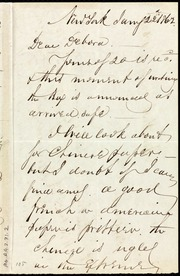 New York Jany 22d 1862
Dear Debora
Yours of 20 is recd
this moment of writing
the Box is announced as
arrived safe
I will look about
for Chinese paper
but I doubt if I can
find any. a good
French or American
paper is prettier, the
Chinese is ugly
as the